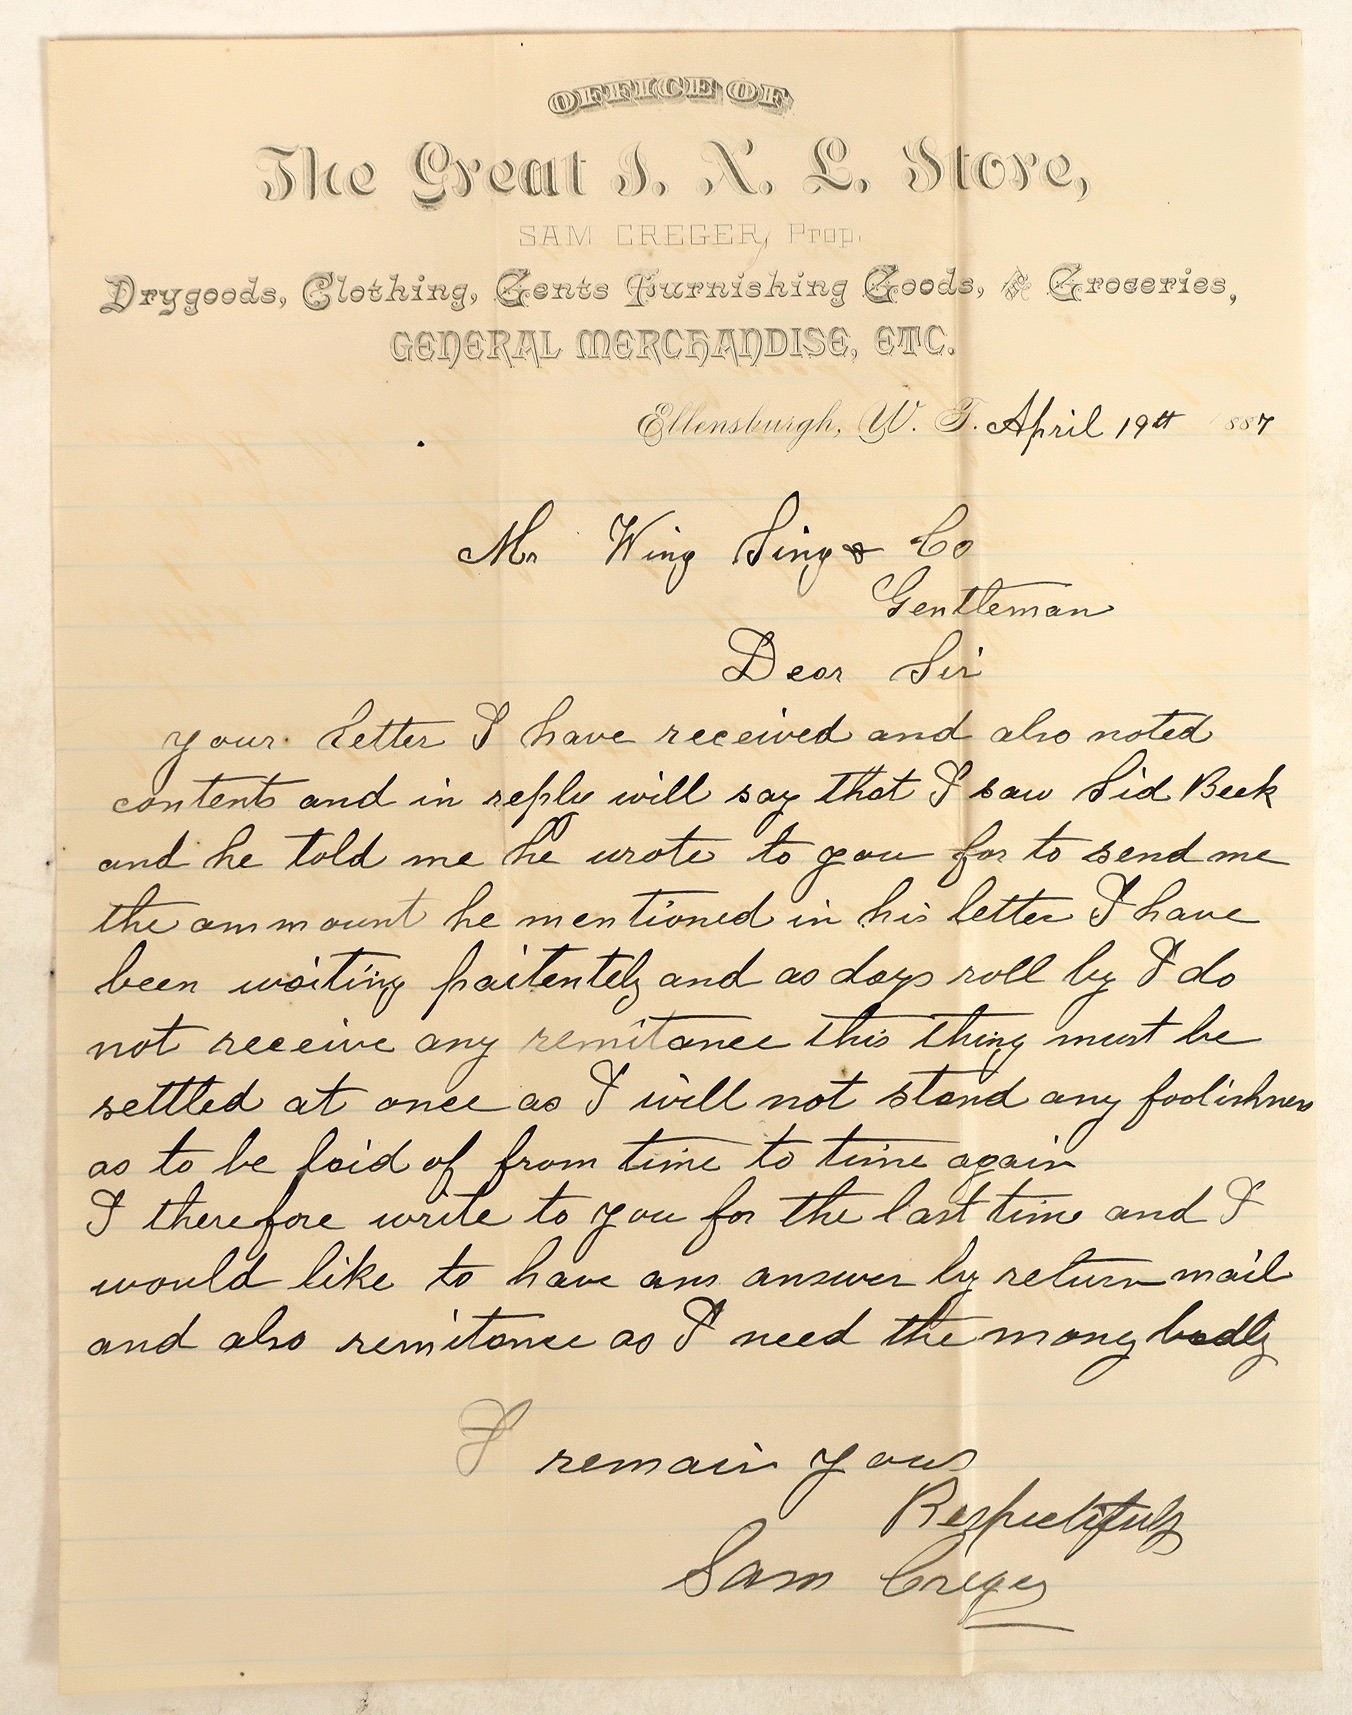 OFFICE OF
The Great I. X. L. Store,
SAM CREGER, Prop.
Drygoods, Clothing, Gents Furnishing Goods, & Groceries,
GENERAL MERCHANDISE, ETC.
Ellensburgh, W. T. April 19th 1887
Mr Wing Sing & Co
Gentleman
Dear Sir
your letter I have received and also noted
contents and in reply will say that I saw Sid Beek
and he told me he wrote to you for to send me
the ammount he mentioned in his letter I have
been waiting paitently and as days roll by I do
not receive any remitance this thing must be
settled at once as I will not stand any foolishness
as to be laid of from time to time again
I therefore write to you for the last time and I
would like to have an answer by return mail
and also remitance as I need the mony badly
I remain yous
Respectifuly
Sam Creger